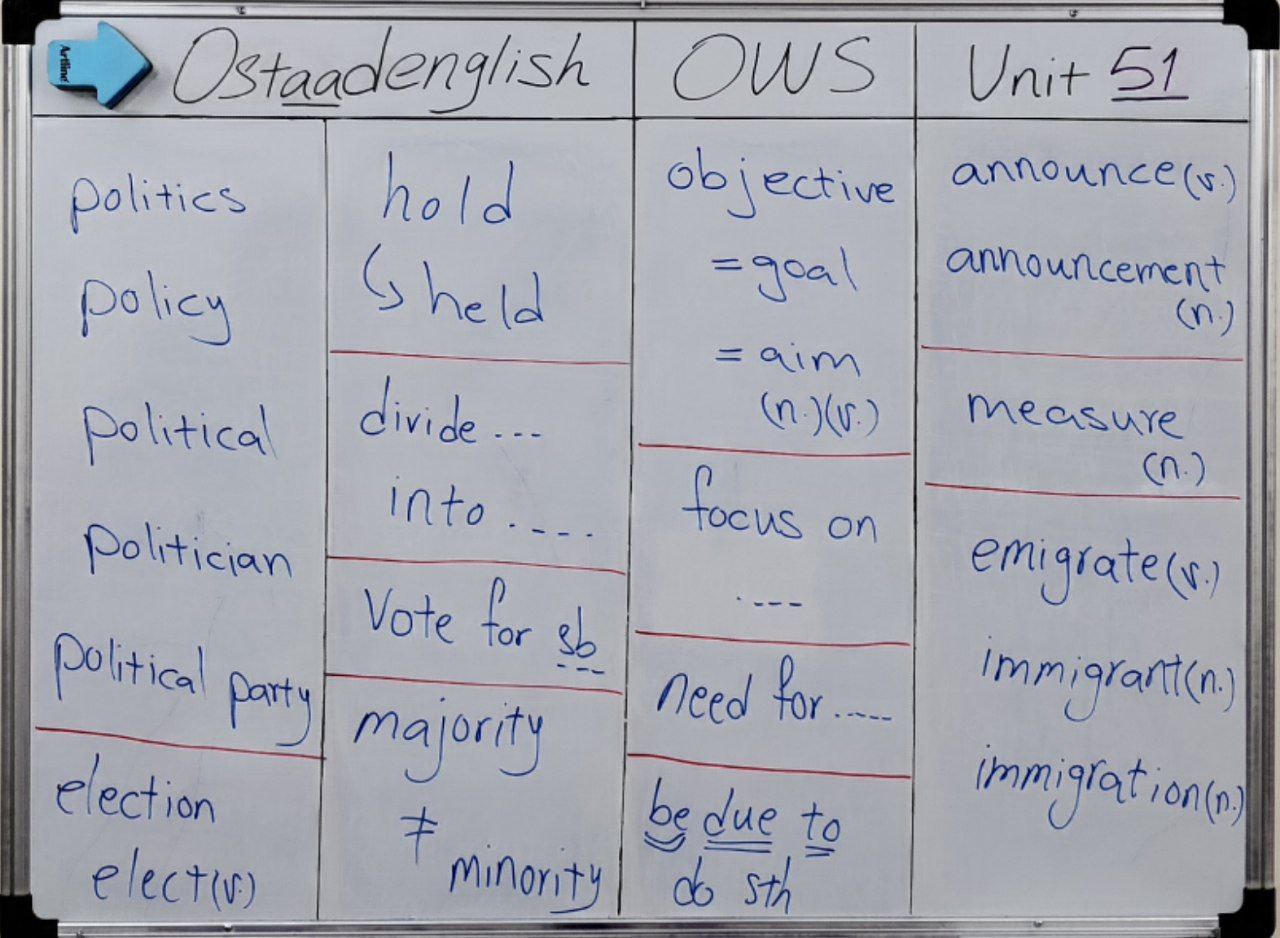 Artline
Ostaadenglish
OWS
Unit 51
politics
policy
political
politician
political party
election
elect(v.)
hold
↳ held
divide ---
into . - - - .
Vote for sb
majority
≠
minority
objective
= goal
= aim
(n.)(v.)
focus on
. - - -
need for . - - - -
be due to
do sth
announce(v.)
announcement
(n.)
measure
(n.)
emigrate(v.)
immigrant(n.)
immigration(n.)